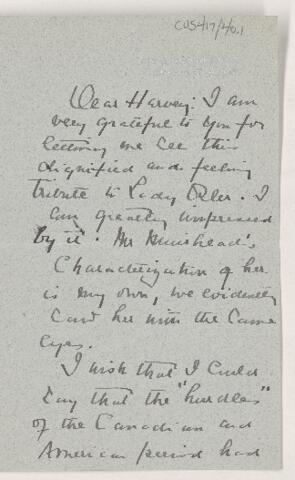 CUS417/40.1
Dear Harvey: I am
very grateful to you for
letting me see this
dignified and feeling
tribute to Lady Osler. I
am greatly impressed
by it. Mr Muirhead's
Characterization of her
is my own, we evidently
saw her with the same
eyes.
I wish that I could
say that the "hurdles"
of the Canadian and
American period had